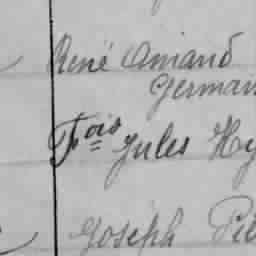 René Amand
German
Fois Jules Hy
Joseph Pie